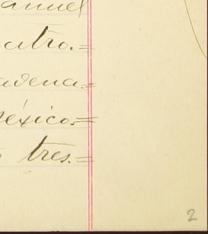 anuel
atro.=
adena.=
éxico.=
tres.=
2